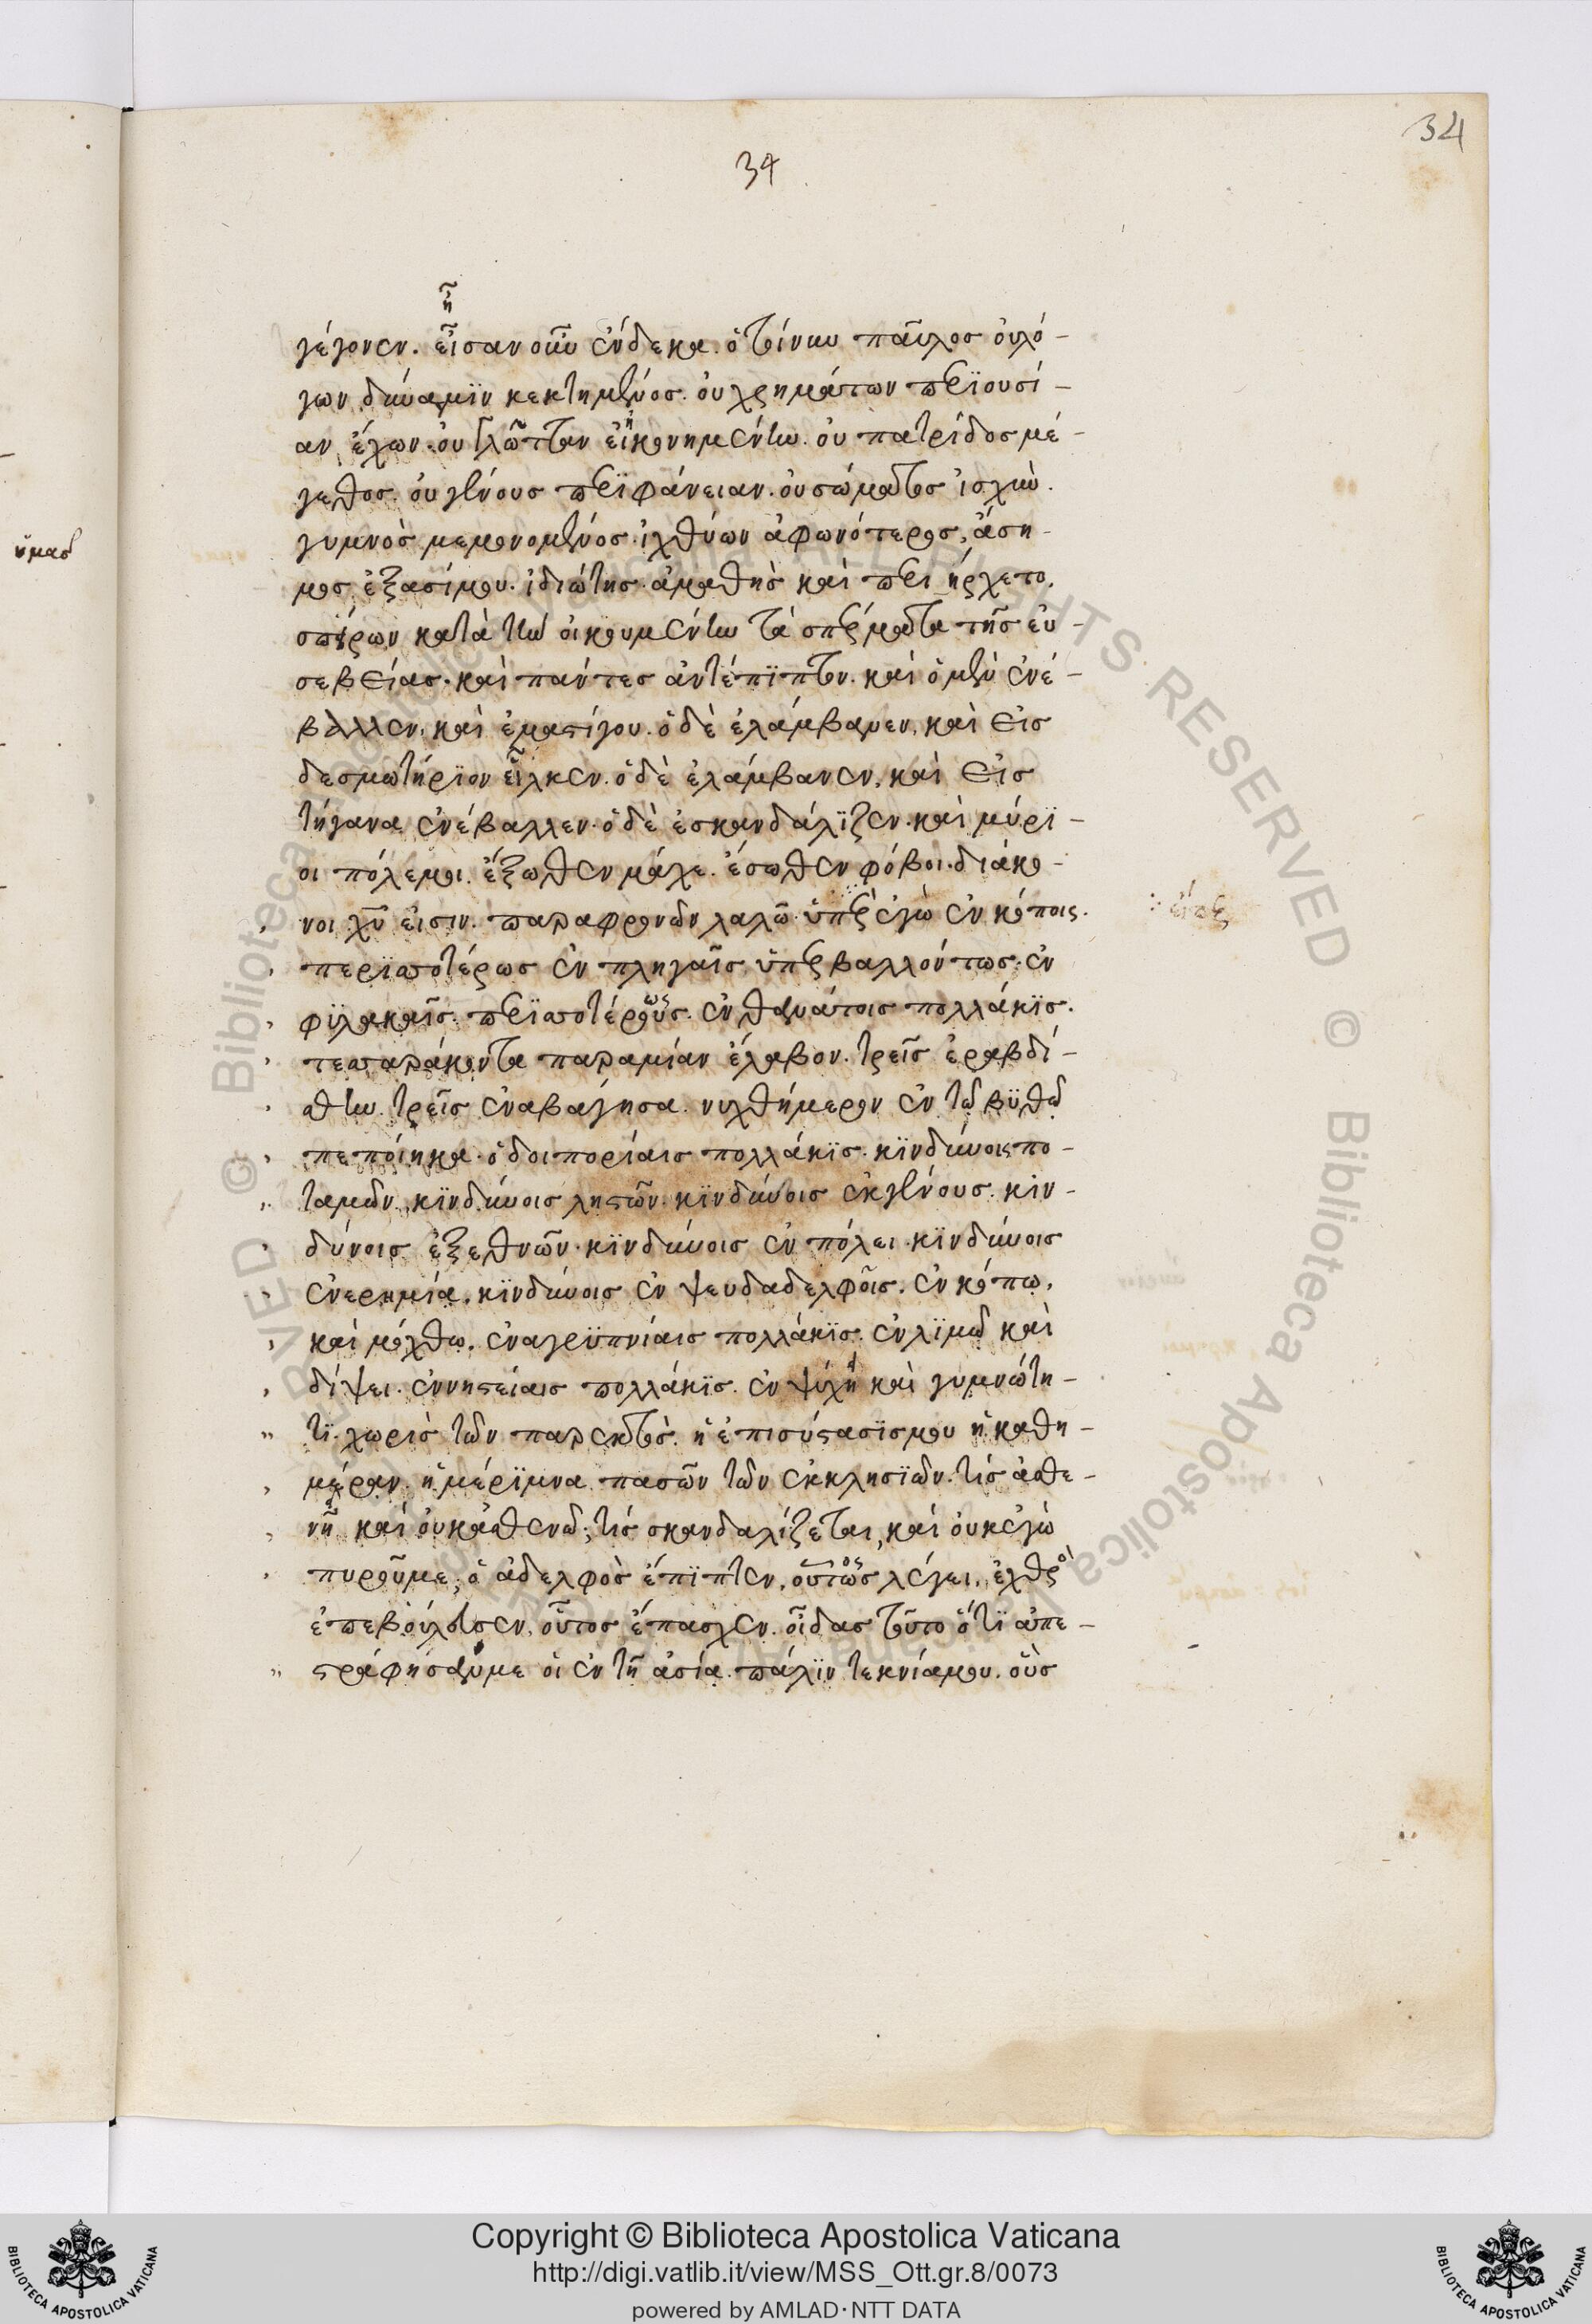 34
34
γέγονεν. εἶσαν οὖν ἕνδεκα. ὅτι ἦν παῦλος οὐ λό-
γων δύναμϊν κεκτημένος. οὐ χρημάτων περϊουσί-
αν ἔχων. οὐ γλῶτταν εἰκονημένην. οὐ πατρίδος μέ-
γεθος. οὐ γένους περϊφάνειαν. οὐ σώματος ἰσχὺν.
γυμνὸς μεμονομένος. ἰχθύων ἀφωνότερος, ἄση-
ὑμασ
μος ἐξ ασίμου. ἰδιώτης. ἀμαθὴς καὶ περιήρχετο.
σπείρων κατὰ τὴν οἰκουμένην τὰ σπέρματα τῆς εὐ-
σεβείας. καὶ πάντες ἀντέπϊπτον. καὶ ὁ μὲν ἐνέ-
βαλλεν, καὶ ἐμαστίγου. ὁ δὲ ἐλάμβανεν, καὶ εἰς
δεσμωτήρϊον εἷλκεν. ὁ δὲ ἐλάμβανεν, καὶ εἰς
τήγανα ἐνέβαλλεν. ὁ δὲ ἐσκανδάλϊζεν. καὶ μύρϊ-
οι πόλεμοι. ἔξωθεν μάχε. ἔσωθεν φόβοι. διάκο-
νοι χυ εἰσιν. παραφρονῶν λαλῶ. ὑπὲρ ἐγὼ ἐν κόποις.
περϊσσοτέρως ἐν πληγαῖς ὑπερβαλλόντως. ἐν
φϋλακαῖς. περϊσσοτέρους. ἐν θανάτοις πολλάκϊς.
τεσσαράκοντα παραμίαν ἔλαβον. τρεῖς ἐραβδί-
σθην. τρεῖς ἐναβάγησα. νυχθήμερον ἐν τῷ βϋθῷ
πεποίηκα. ὁδοιπορίαις πολλάκϊς. κϊνδύνοις πο-
ταμῶν. κϊνδύνοις ληστῶν. κϊνδύνοις ἐκ γένους. κιν-
δύνοις ἐξ εθνῶν. κϊνδύνοις ἐν πόλει. κϊνδύνοις
ἐν ερημία. κϊνδύνοις ἐν ψευδαδελφοῖς. ἐν κόπω.
καὶ μόχθω. ἐν αγρϋπνίαις πολλάκϊς. ἐν λϊμῶ καὶ
δίψει. ἐν νηστείαις πολλάκϊς. ἐν ψύχη καὶ γυμνώτη-
τϊ. χωρὶς τῶν παρεκτὸς. ἡ ἐπισύστασϊς μου ἡ καθη-
μέραν. ἡ μέρϊμνα πασῶν τῶν ἐκκλησϊῶν. τίς ἀσθε-
νῆ καὶ οὐκ ἀσθενῶ; τίς σκανδαλίζεται, καὶ οὐκ ἐγὼ
πυροῦμε; ὁ ἀδελφὸς ἔπϊπτεν, οὕτως λέγει, ἐχθροὶ
ἐπεβούλευσεν, οὗτος ἔπασχεν. οἶδας τοῦτο ὅτϊ ἀπε-
στράφησάν με οἱ ἐν τῆ ἀσία. πάλϊν τεκνία μου. οὓς